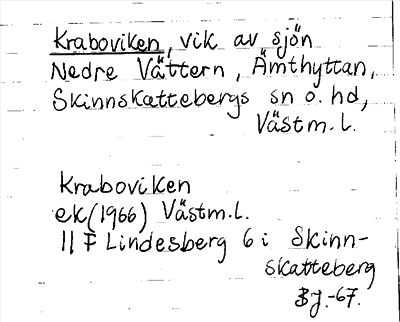 Kraboviken, vik av sjön
Nedre Vättern, Ämthyttan,
Skinnskattebergs sn o. hd,
Västm.l.
Kraboviken
ek(1966) Västm.l.
11 F Lindesberg 6 i Skinn-
skatteberg
BJ.-67.